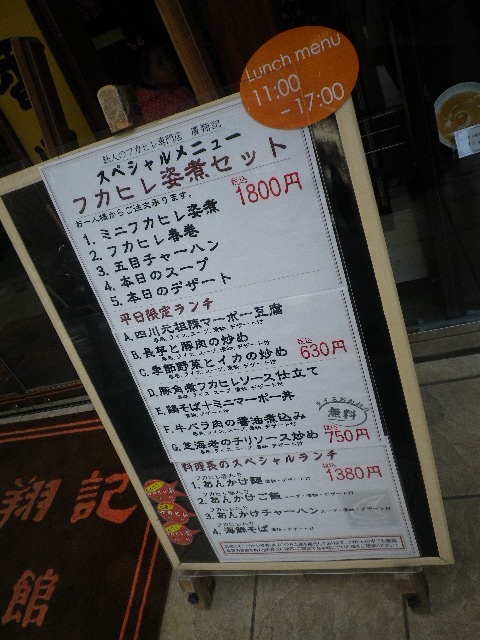 Lunch menu
11:00
-17:00
鉄人のフカヒレ専門店 廣翔記
スペシャルメニュー
フカヒレ姿煮セット
お一人様からご注文承ります。
税込1800円
1. ミニフカヒレ姿煮
2. フカヒレ春巻
3. 五目チャーハン
4. 本日のスープ
5. 本日のデザート
平日限定ランチ
A. 四川元祖陳マーボー豆腐
B. 長芋と豚肉の炒め
C. 季節野菜とイカの炒め
税込630円
D. 豚角煮フカヒレソース仕立て
E. 鶏そば+ミニマーボー丼
F. 牛バラ肉の醤油煮込み
G. 芝海老のチリソース炒め
無料
税込750円
料理長のスペシャルランチ
税込1380円
1. あんかけ麺
2. あんかけご飯
3. あんかけチャーハン
4. 海鮮そば
翔記
館